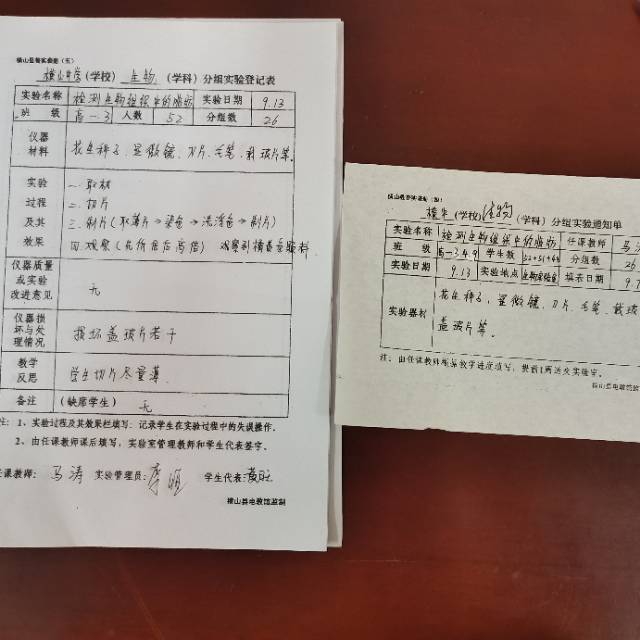 横山县教实表册（五）
横山中学（学校） 生物（学科）分组实验登记表
实验名称 检测生物组织中的脂肪 实验日期 9.13
班 级 高一3 人数 52 分组数 26
仪器材料 花生种子、显微镜、刀片、毛笔、载玻片等。
实验过程及其效果
一、取材
二、切片
三、制片（取薄片→染色→洗浮色→制片）
四、观察（先低倍后高倍） 观察到橘黄色颗粒
仪器质量或实验改进意见 无
仪器损坏与处理情况 损坏盖玻片若干
教学反思 学生切片尽量薄.
备注 （缺席学生） 无
注：1、实验过程及其效果栏填写：记录学生在实验过程中的失误操作。
2、由任课教师课后填写，实验室管理教师和学生代表签字。
任课教师：马涛 实验管理员： 学生代表：
横山县电教馆监制
横山县教实表册（四）
横中（学校） 生物（学科）分组实验通知单
实验名称 检测生物组织中的脂肪 任课教师 马
班 级 高一3.4.9 学生数 52+51+ 分组数 26
实验日期 9.13 实验地点 生物实验室 填表日期 9.7
实验器材 花生种子、显微镜、刀片、毛笔、载玻
盖玻片等。
注：由任课教师视其教学进度填写，提前1周送交实验室。
横山县电教馆监